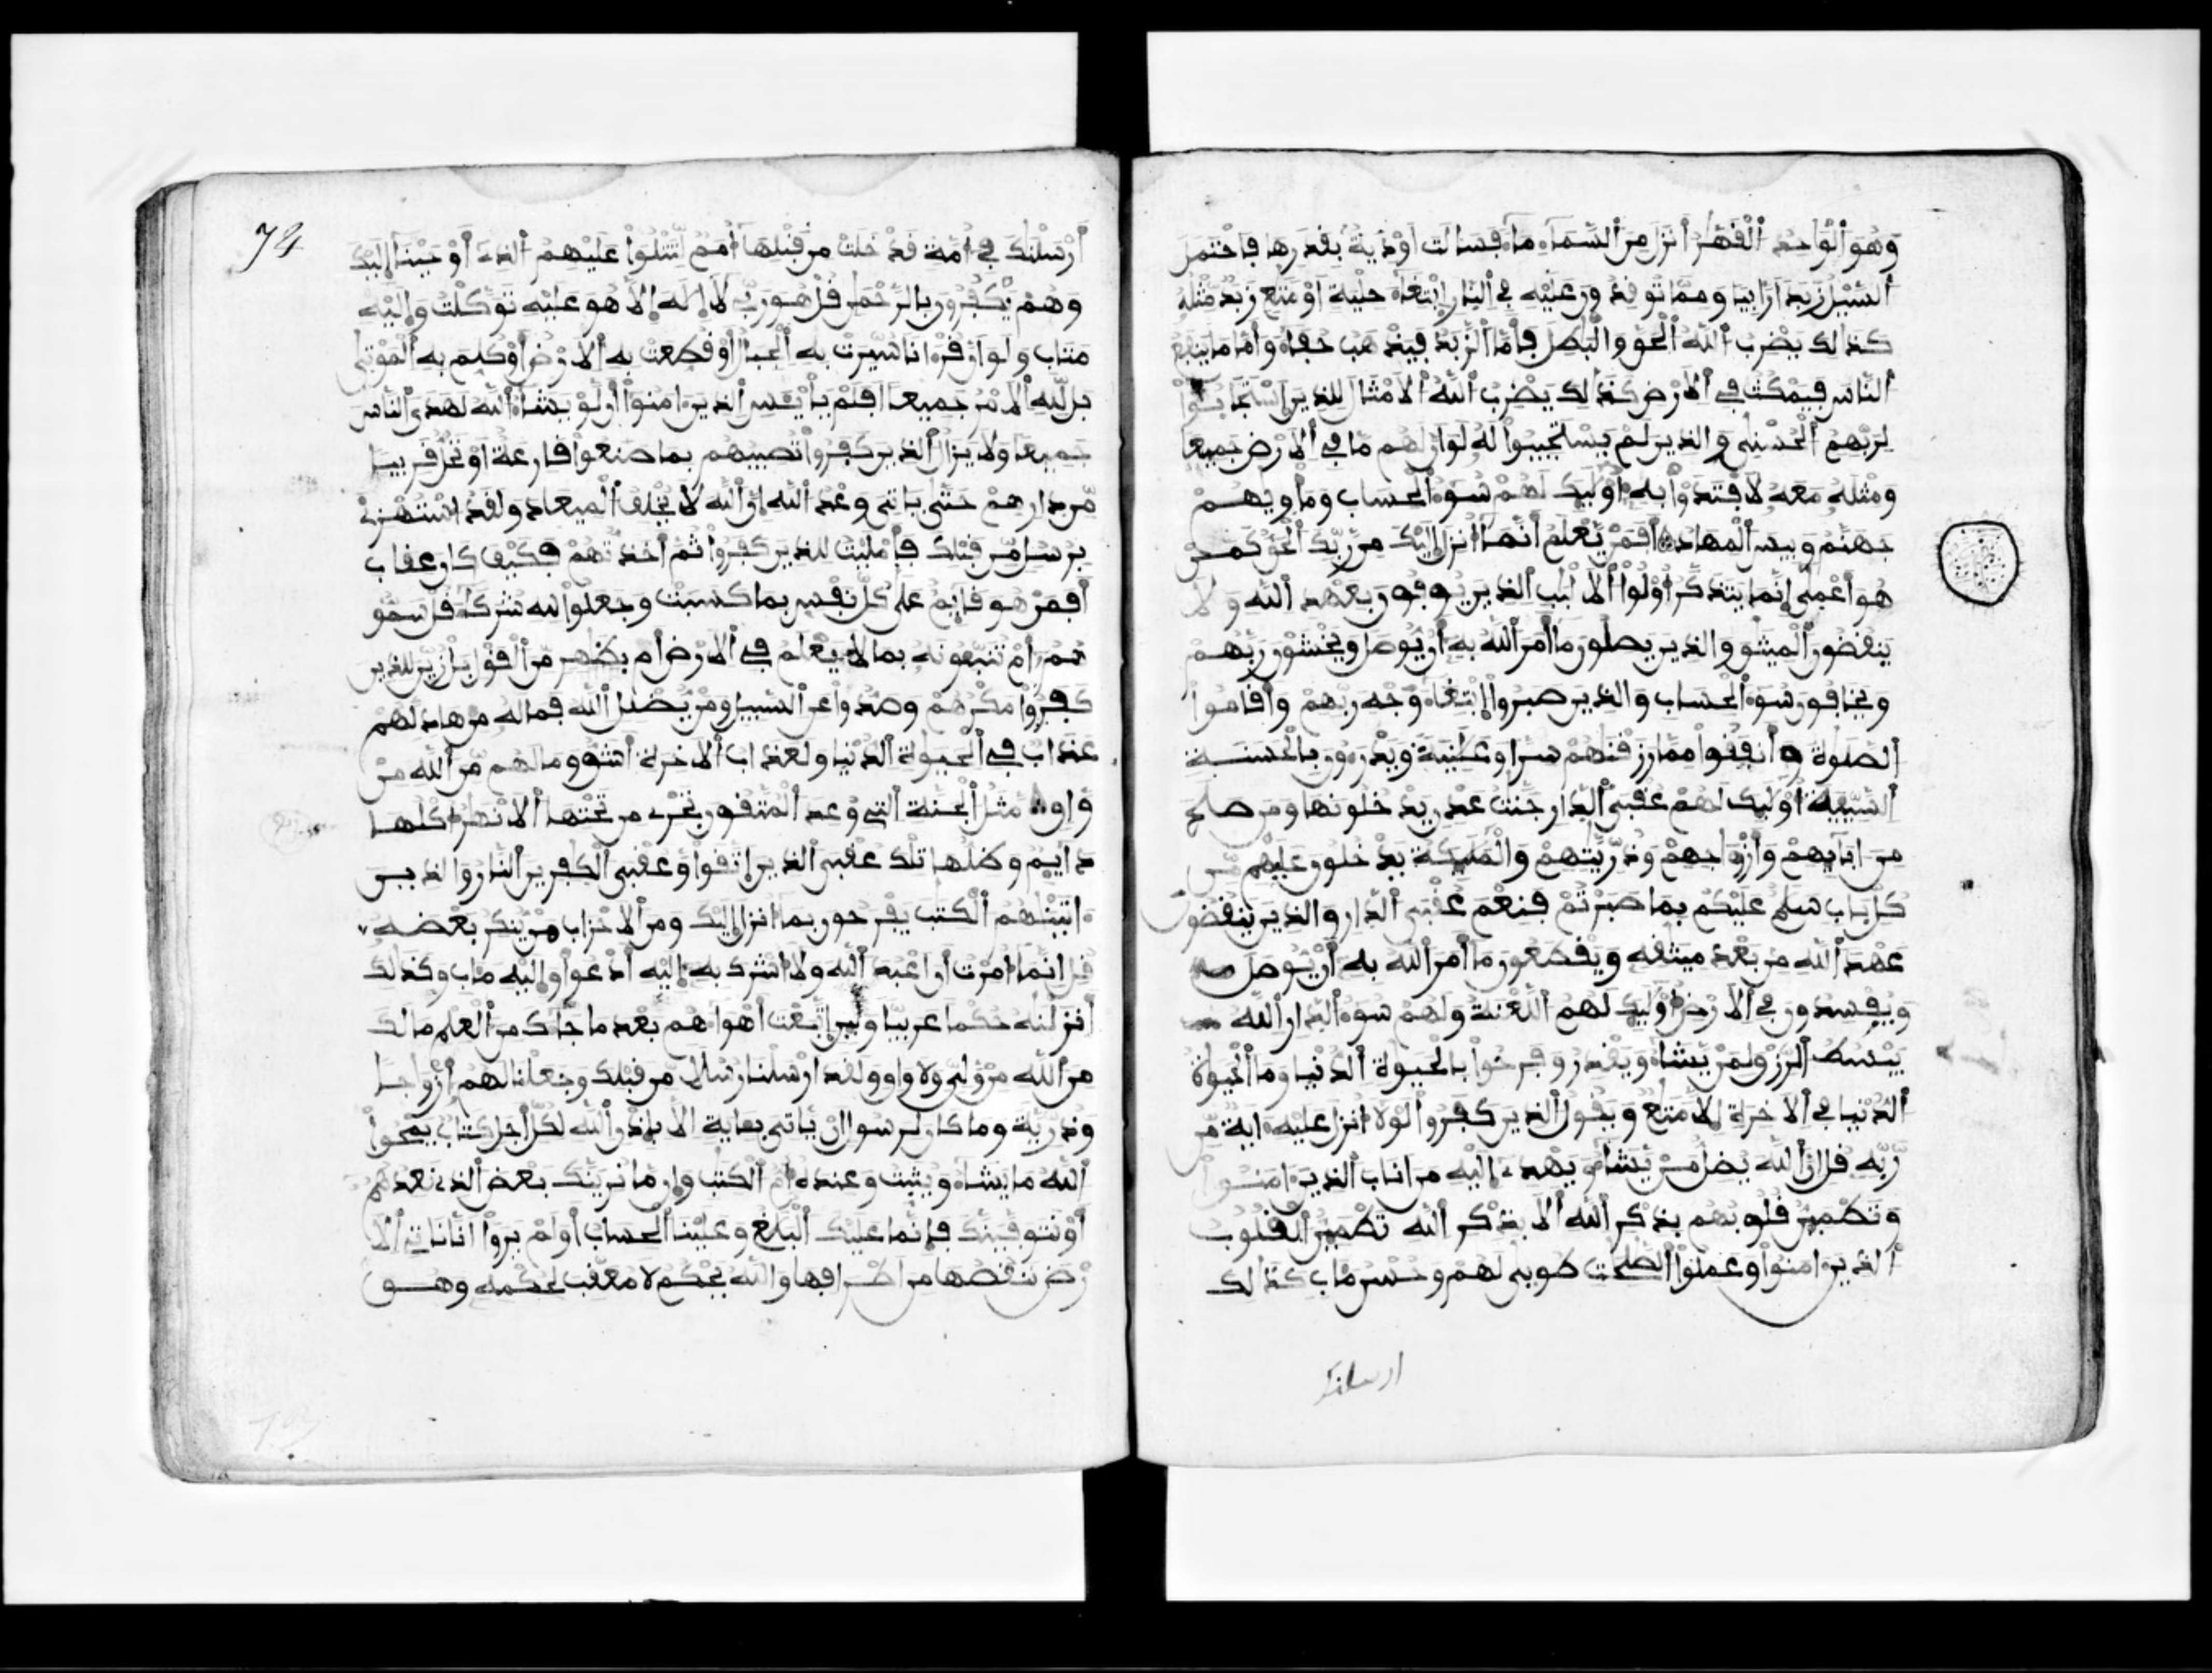 وهو الوحد القهر أنزل من السماء ماء فسالت أودية بقدرها فاحتمل
السيل زبدا رابيا ومما توقدون عليه في النار ابتغاء حلية أو متع زبد مثله
كذلك يضرب الله الحق والبطل فأما الزبد فيذهب جفاء وأما ما ينفع
الناس فيمكث في الأرض كذلك يضرب الله الأمثال للذين استجابوا
لربهم الحسنى والذين لم يستجيبوا له لو أن لهم ما في الأرض جميعا
ومثله معه لافتدوا به أوليك لهم سوء الحساب ومأويهم
جهنم وبيس المهاد أفمن يعلم أنما أنزل إليك من ربك الحق كمن
هو أعمى إنما يتذكر أولوا الألبب الذين يوفون بعهد الله ولا
ينقضون الميثق والذين يصلون ما أمر الله به أن يوصل ويخشون ربهم
ويخافون سوء الحساب والذين صبروا ابتغاء وجه ربهم وأقاموا
الصلوة وأنفقوا مما رزقنهم سرا وعلنية ويدرءون بالحسنة
السيية أوليك لهم عقبى الدار جنت عدن يدخلونها ومن صلح
من ابايهم وأزواجهم وذريتهم والمليكة يدخلون عليهم من
كل باب سلم عليكم بما صبرتم فنعم عقبى الدار والذين ينقضون
عهد الله من بعد ميثقه ويقطعون ما أمر الله به أن يوصل
ويفسدون في الأرض أوليك لهم اللعنة ولهم سوء الدار الله
يبسط الرزق لمن يشاء ويقدر وفرحوا بالحيوة الدنيا وما الحيوة
الدنيا في الأخرة إلا متع ويقول الذين كفروا لولا أنزل عليه اية من
ربه قل إن الله يضل من يشاء ويهدي إليه من اناب الذين امنوا
وتطمين قلوبهم بذكر الله ألا بذكر الله تطمين القلوب
الذين امنوا وعملوا الصلحت طوبى لهم وحسن ماب كذلك
ارسلنك
74
أرسلنك في أمة قد خلت من قبلها أمم لتتلوا عليهم الذي أوحينا إليك
وهم يكفرون بالرحمن قل هو ربي لا إله إلا هو عليه توكلت وإليه
متاب ولو أن قرانا سيرت به الجبال أو قطعت به الأرض أو كلم به الموتى
بل لله الأمر جميعا أفلم يايئس الذين امنوا أن لو يشاء الله لهدى الناس
جميعا ولا يزال الذين كفروا تصيبهم بما صنعوا قارعة أو تحل قريبا
من دارهم حتى ياتي وعد الله إن الله لا يخلف الميعاد ولقد استهزئ
برسل من قبلك فأمليت للذين كفروا ثم أخذتهم فكيف كان عقاب
أفمن هو قايم على كل نفس بما كسبت وجعلوا لله شركاء قل سمو
هم أم تنبئونه بما لا يعلم في الأرض أم بظهر من القول بل زين للذين
كفروا مكرهم وصدوا عن السبيل ومن يضلل الله فما له من هاد لهم
عذاب في الحيوة الدنيا ولعذاب الأخرة أشق وما لهم من الله من
واق مثل الجنة التي وعد المتقون تجري من تحتها الأنهر أكلها
دايم وظلها تلك عقبى الذين اتقوا وعقبى الكفرين النار والذين
اتينهم الكتب يفرحون بما انزل إليك ومن الأحزاب من ينكر بعضه
قل إنما أمرت أن أعبد الله ولا أشرك به إليه أدعوا وإليه ماب وكذلك
أنزلنه حكما عربيا ولين اتبعت أهواءهم بعد ما جاك من العلم ما لك
من الله من ولي ولا واق ولقد ارسلنا رسلا من قبلك وجعلنا لهم أزواجا
وذرية وما كان لرسول ان ياتي بعاية الا بإذن الله لكل أجل كتاب يمحوا
الله ما يشاء ويثبت وعنده أم الكتب وإن ما نرينك بعض الذي نعدهم
أو نتوفينك فإنما عليك البلغ وعلينا الحساب أولم يروا انا ناتي الا
رض ننقصها من أطرافها والله يحكم لا معقب لحكمه وهو